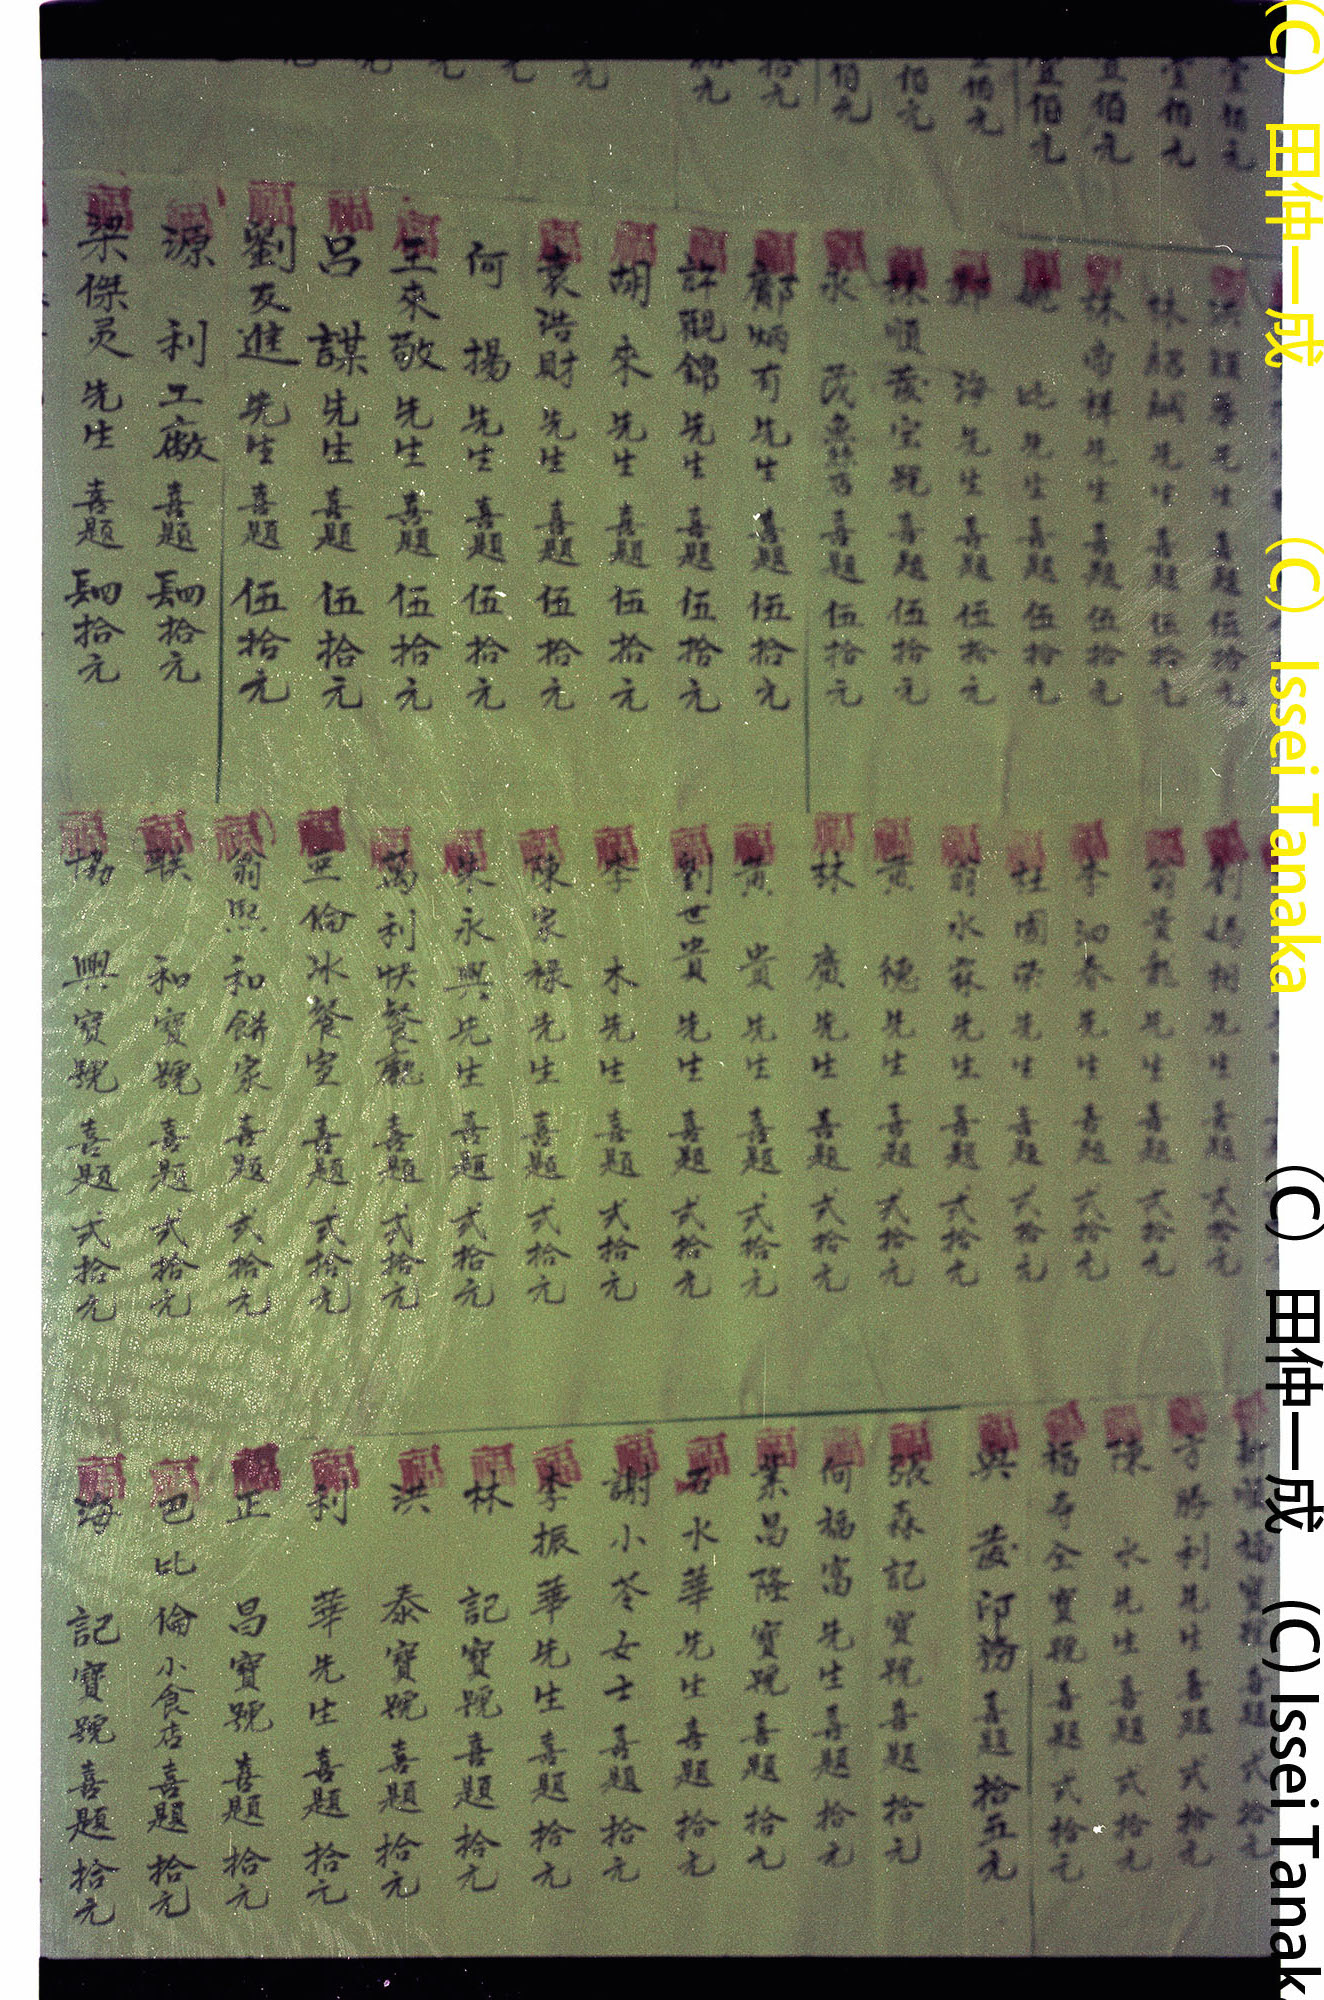 壹伯元
壹伯元
壹伯元
壹伯元
伯元
伯元
伯元
拾元
元
元
先生喜題伍拾元
林 先生喜題伍拾元
林 祥先生喜題伍拾元
姚 比先生喜題伍拾元
鄭 海先生喜題伍拾元
林順發宝號喜題伍拾元
永 茂魚 喜題伍拾元
鄺炳有先生喜題伍拾元
許觀錦先生喜題伍拾元
胡 來先生喜題伍拾元
袁浩財先生喜題伍拾元
何 揚先生喜題伍拾元
王來敬先生喜題伍拾元
呂 謀先生喜題伍拾元
劉友進先生喜題伍拾元
源 利工廠喜題肆拾元
梁傑灵先生喜題肆拾元
劉 樹先生喜題弍拾元
翁 先生喜題弍拾元
李 春先生喜題弍拾元
杜國榮先生喜題弍拾元
翁水霖先生喜題弍拾元
黃 德先生喜題弍拾元
林 廣先生喜題弍拾元
黃 貴先生喜題弍拾元
劉世貴先生喜題弍拾元
李 木先生喜題弍拾元
陳家祿先生喜題弍拾元
朱永興先生喜題弍拾元
萬利快餐廳喜題弍拾元
亞倫冰餐室喜題弍拾元
翁熙和餅家喜題弍拾元
联 和寶號喜題弍拾元
協 興寶號喜題弍拾元
新 福寶號喜題弍拾元
方勝利先生喜題弍拾元
陳 水先生喜題弍拾元
福寿全寶號喜題弍拾元
興 發 喜題拾五元
張森記寶號喜題拾元
何福富先生喜題拾元
葉昌隆寶號喜題拾元
石水華先生喜題拾元
謝小苓女士喜題拾元
李振華先生喜題拾元
林 記寶號喜題拾元
洪 泰寶號喜題拾元
利 華先生喜題拾元
正 昌寶號喜題拾元
巴比倫小食店喜題拾元
海 記寶號喜題拾元
(C) 田仲一成 (C) Issei Tanaka
(C) 田仲一成 (C) Issei Tanak